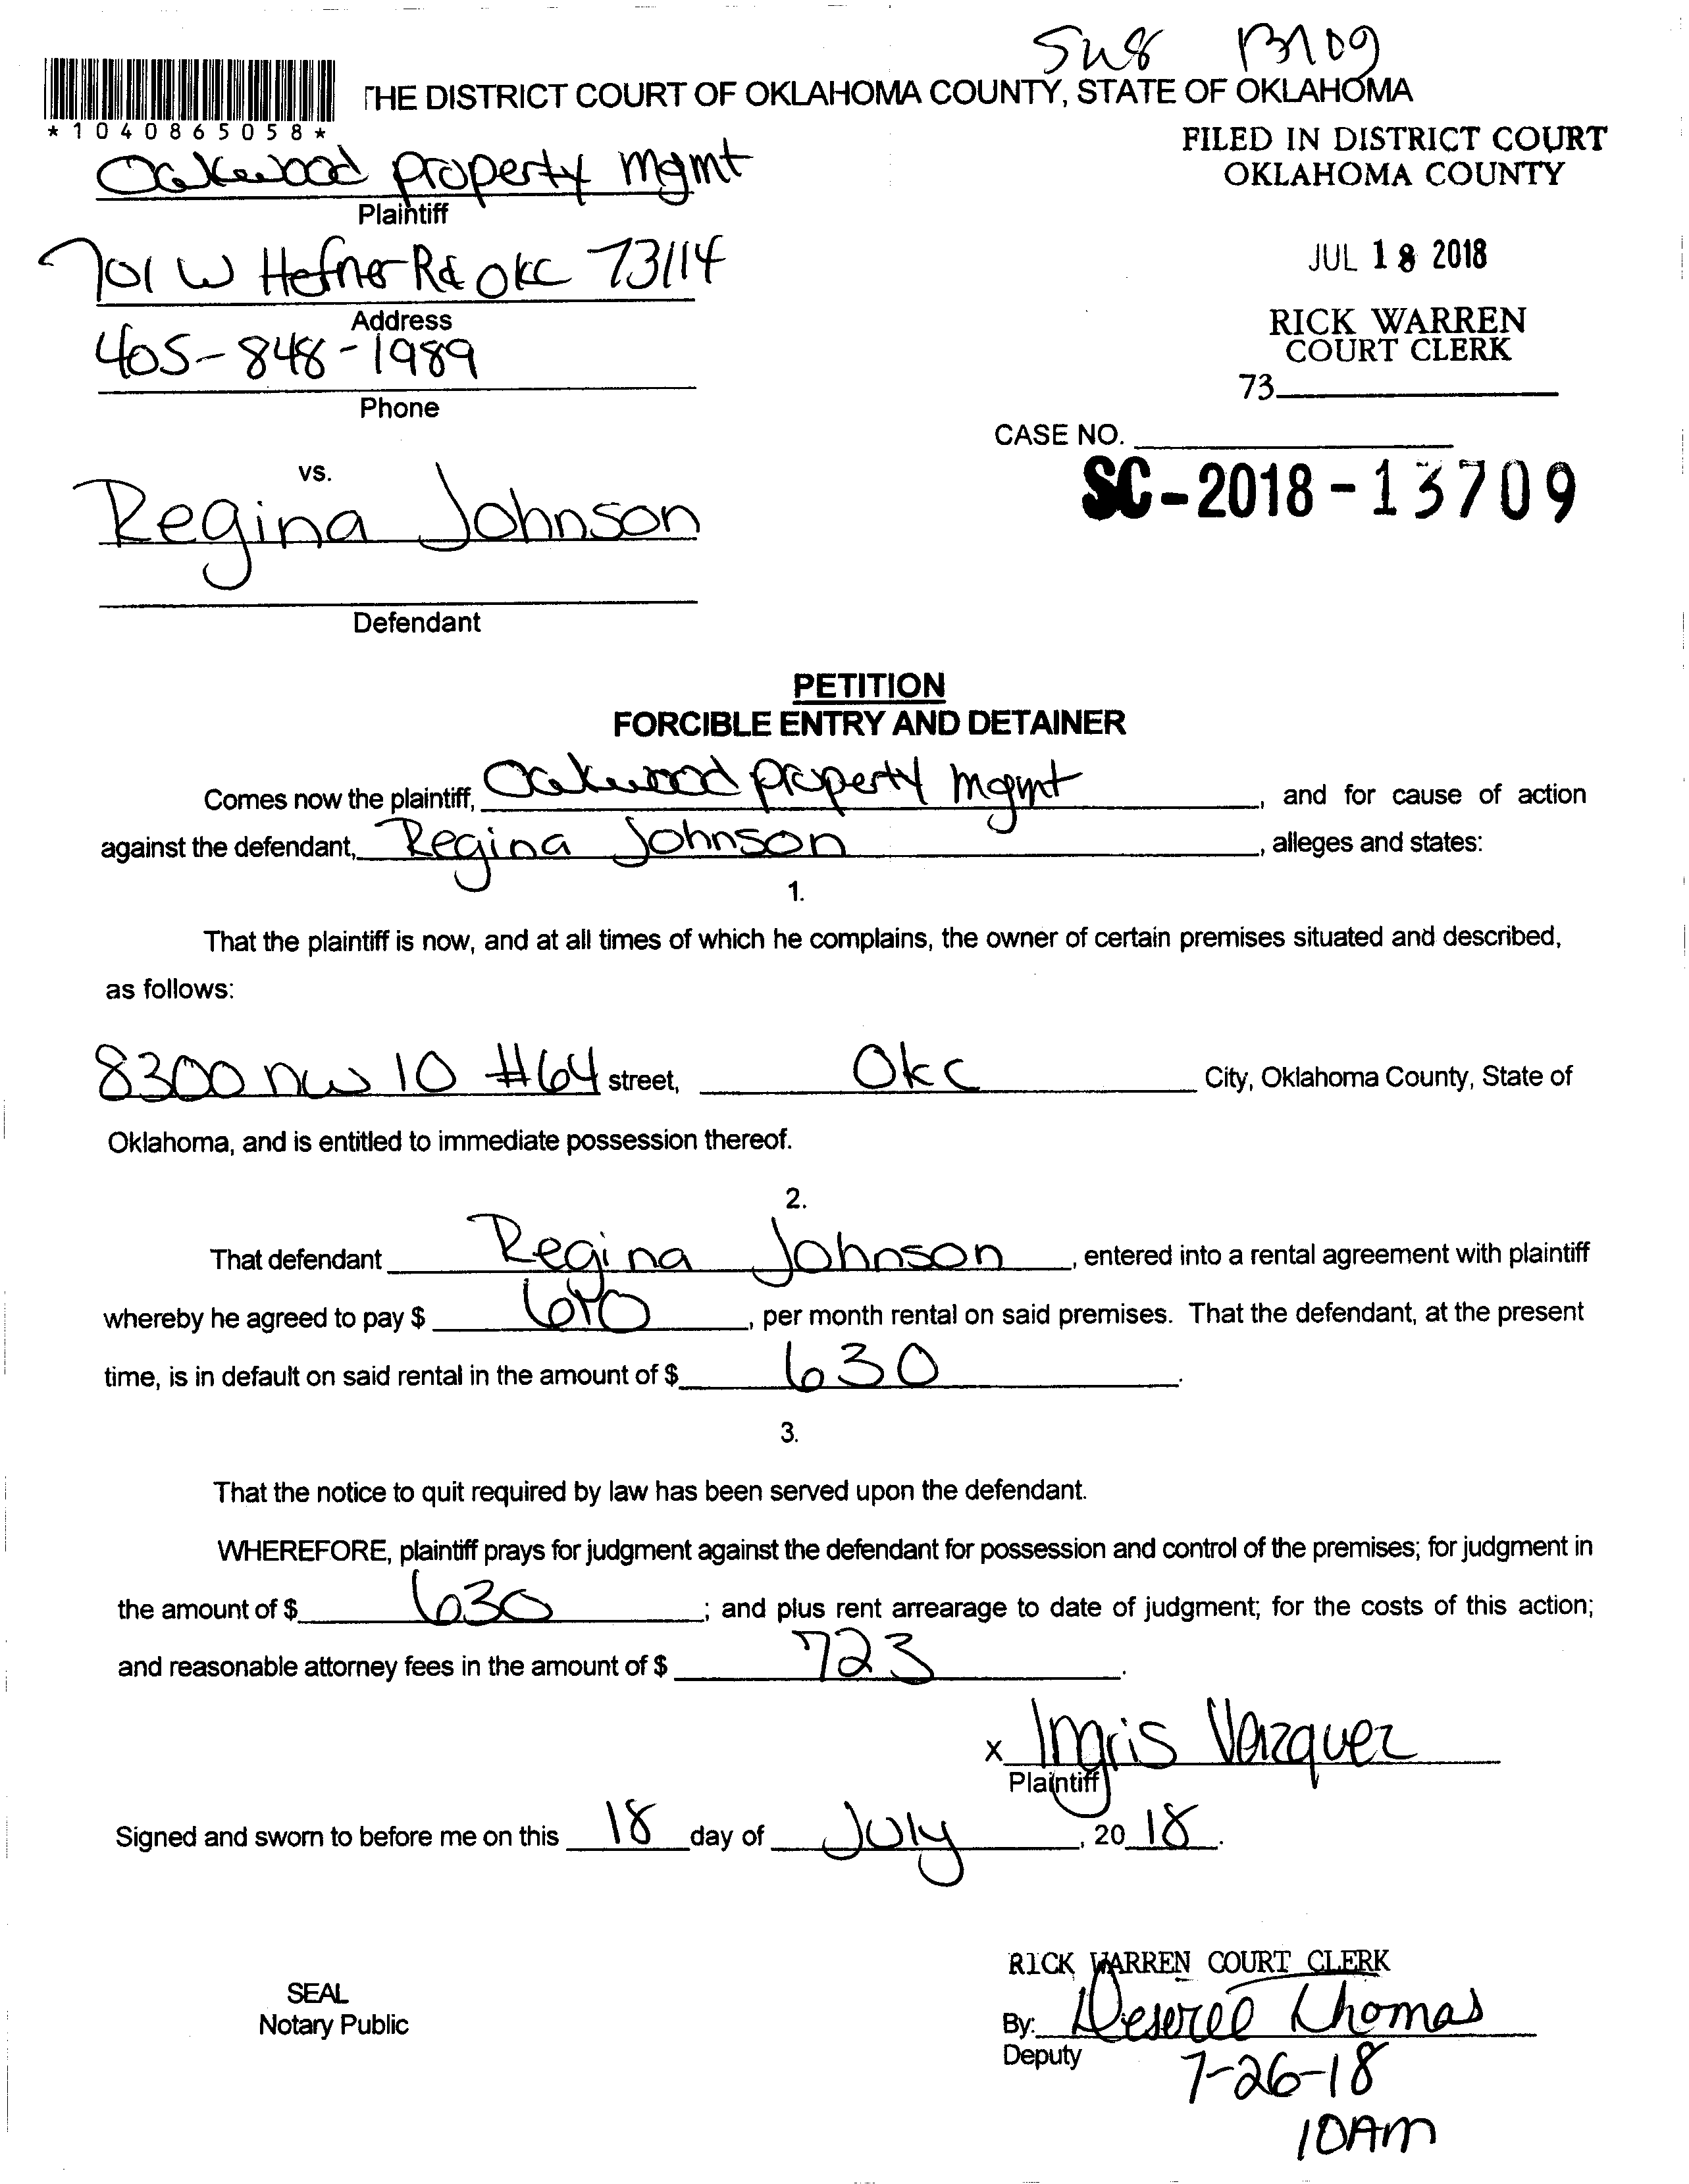 THE DISTRICT COURT OF OKLAHOMA COUNTY, STATE OF OKLAHOMA
*1040865058*
FILED IN DISTRICT COURT
OKLAHOMA COUNTY
Oakwood property mgmt
Plaintiff
JUL 18 2018
701 W Hefner Rd OKC 73114
Address
RICK WARREN
COURT CLERK
405-848-1989
73
Phone
CASE NO.
SC-2018-13709
vs.
Regina Johnson
Defendant
PETITION
FORCIBLE ENTRY AND DETAINER
Comes now the plaintiff, Oakwood property mgmt, and for cause of action
against the defendant, Regina Johnson, alleges and states:
1.
That the plaintiff is now, and at all times of which he complains, the owner of certain premises situated and described,
as follows:
8300 nw 10 #64 street, OKC City, Oklahoma County, State of
Oklahoma, and is entitled to immediate possession thereof.
2.
That defendant Regina Johnson, entered into a rental agreement with plaintiff
whereby he agreed to pay $ , per month rental on said premises. That the defendant, at the present
time, is in default on said rental in the amount of $ 630.
3.
That the notice to quit required by law has been served upon the defendant.
WHEREFORE, plaintiff prays for judgment against the defendant for possession and control of the premises; for judgment in
the amount of $ 630; and plus rent arrearage to date of judgment; for the costs of this action;
and reasonable attorney fees in the amount of $ 723.
x Ingris Vazquez
Plaintiff
Signed and sworn to before me on this 18 day of July, 2018.
RICK WARREN COURT CLERK
SEAL
Notary Public
By: Deseree Thomas
Deputy
7-26-18
10AM